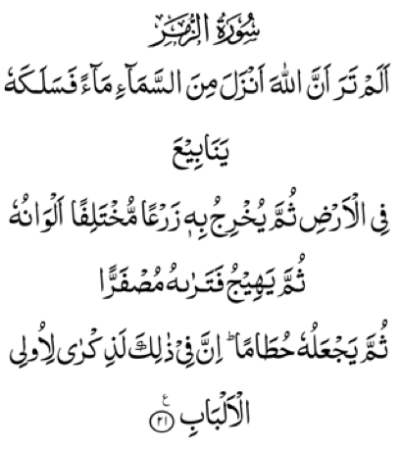 سُوْرَةُ الزُّمَرْ
اَلَمْ تَرَ اَنَّ اللّٰهَ اَنْزَلَ مِنَ السَّمَآءِ مَآءً فَسَلَكَهٗ
يَنَابِيْعَ
فِي الْاَرْضِ ثُمَّ يُخْرِجُ بِهٖ زَرْعًا مُّخْتَلِفًا اَلْوَانُهٗ
ثُمَّ يَهِيْجُ فَتَرٰىهُ مُصْفَرًّا
ثُمَّ يَجْعَلُهٗ حُطَامًا ؕ اِنَّ فِيْ ذٰلِكَ لَذِكْرٰى لِاُولِي
الْاَلْبَابِ ۧ ﴿٢١﴾